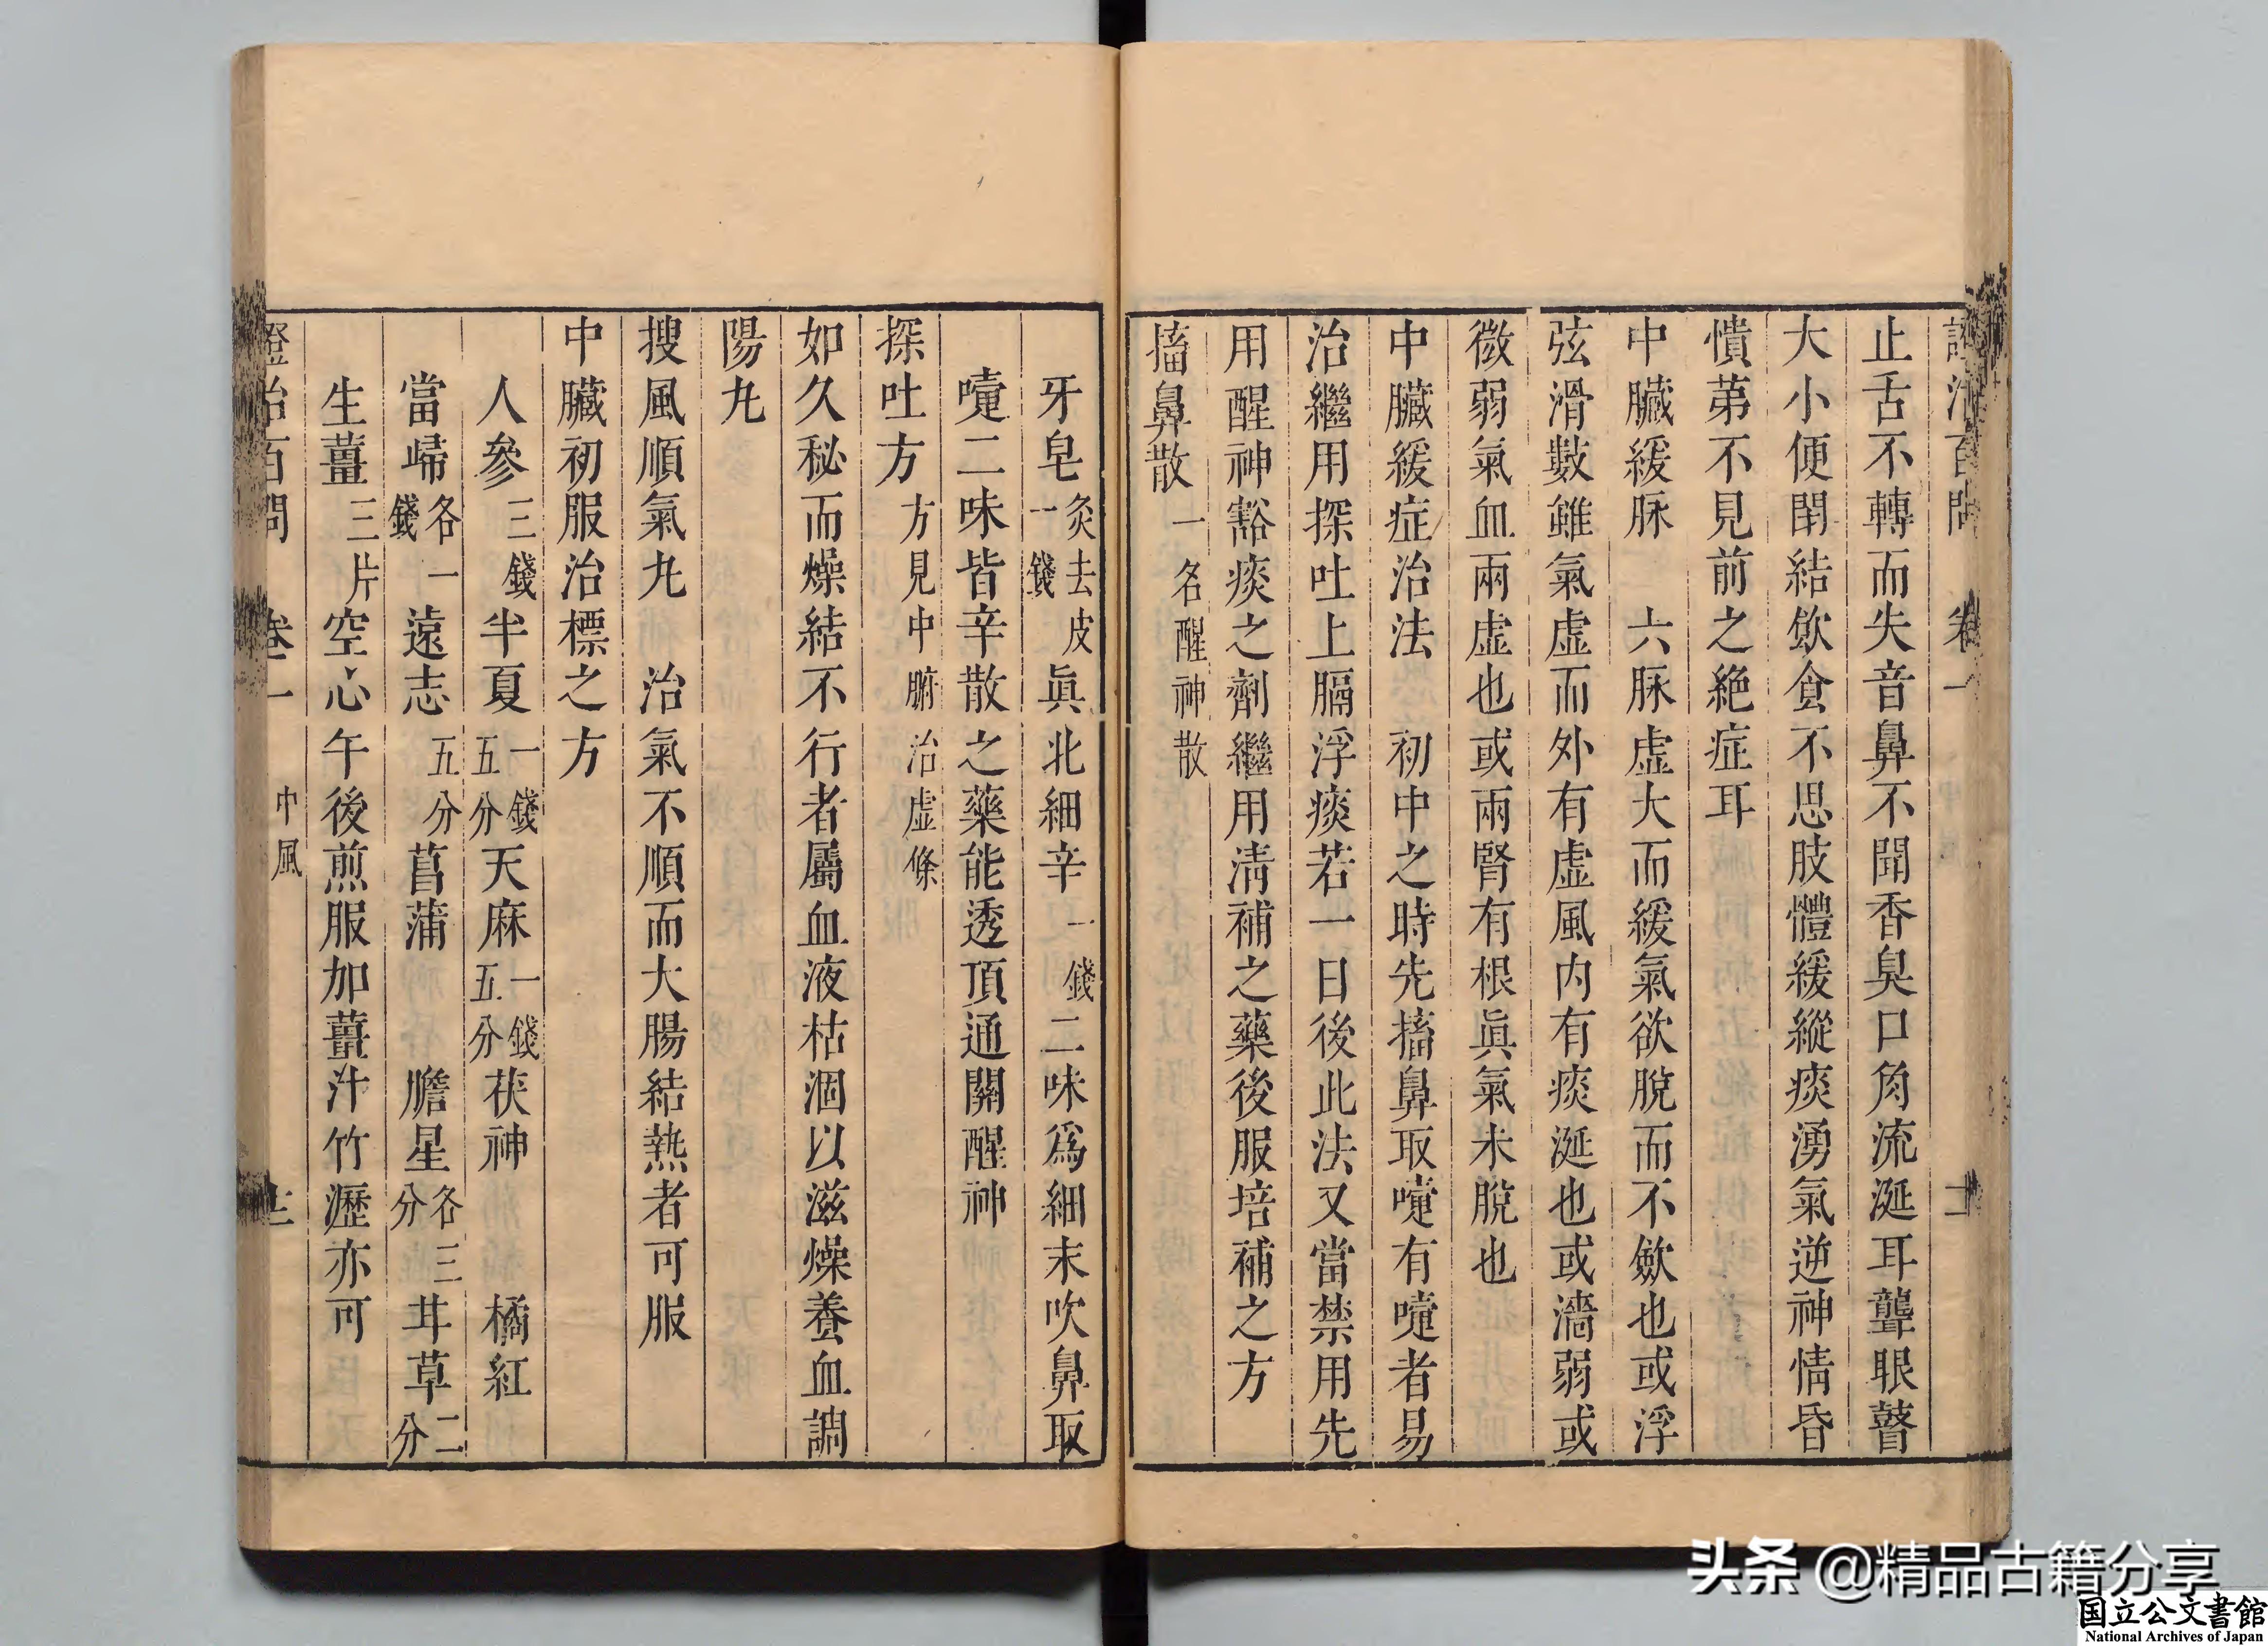 證治百問 卷一 十一
止舌不轉而失音鼻不聞香臭口角流涎耳聾眼瞽
大小便閉結飲食不思肢體緩縱痰湧氣逆神情昏
憒苐不見前之絶症耳
中臟緩脉 六脉虛大而緩氣欲脫而不斂也或浮
弦滑數雖氣虛而外有虛風内有痰涎也或濇弱或
微弱氣血兩虛也或兩腎有根眞氣未脫也
中臟緩症治法 初中之時先搐鼻取嚏有嚏者易
治繼用探吐上膈浮痰若一日後此法又當禁用先
用醒神豁痰之劑繼用淸補之藥後服培補之方
搐鼻散 一名醒神散
牙皂 炙去皮一錢 眞北細辛 一錢 二味爲細末吹鼻取
嚏二味皆辛散之藥能透頂通關醒神
探吐方 方見中腑治虛條
如久秘而燥結不行者屬血液枯涸以滋燥養血調
陽九
搜風順氣九 治氣不順而大腸結熱者可服
中臟初服治標之方
人參 三錢 半夏 一錢五分 天麻 一錢五分 茯神 橘紅
當歸 各一錢 遠志 五分 菖蒲 膽星 各三分 甘草 二分
生薑 三片 空心午後煎服加薑汁竹瀝亦可
證治百問 卷一 中風
头条 @精品古籍分享
国立公文書館
National Archives of Japan